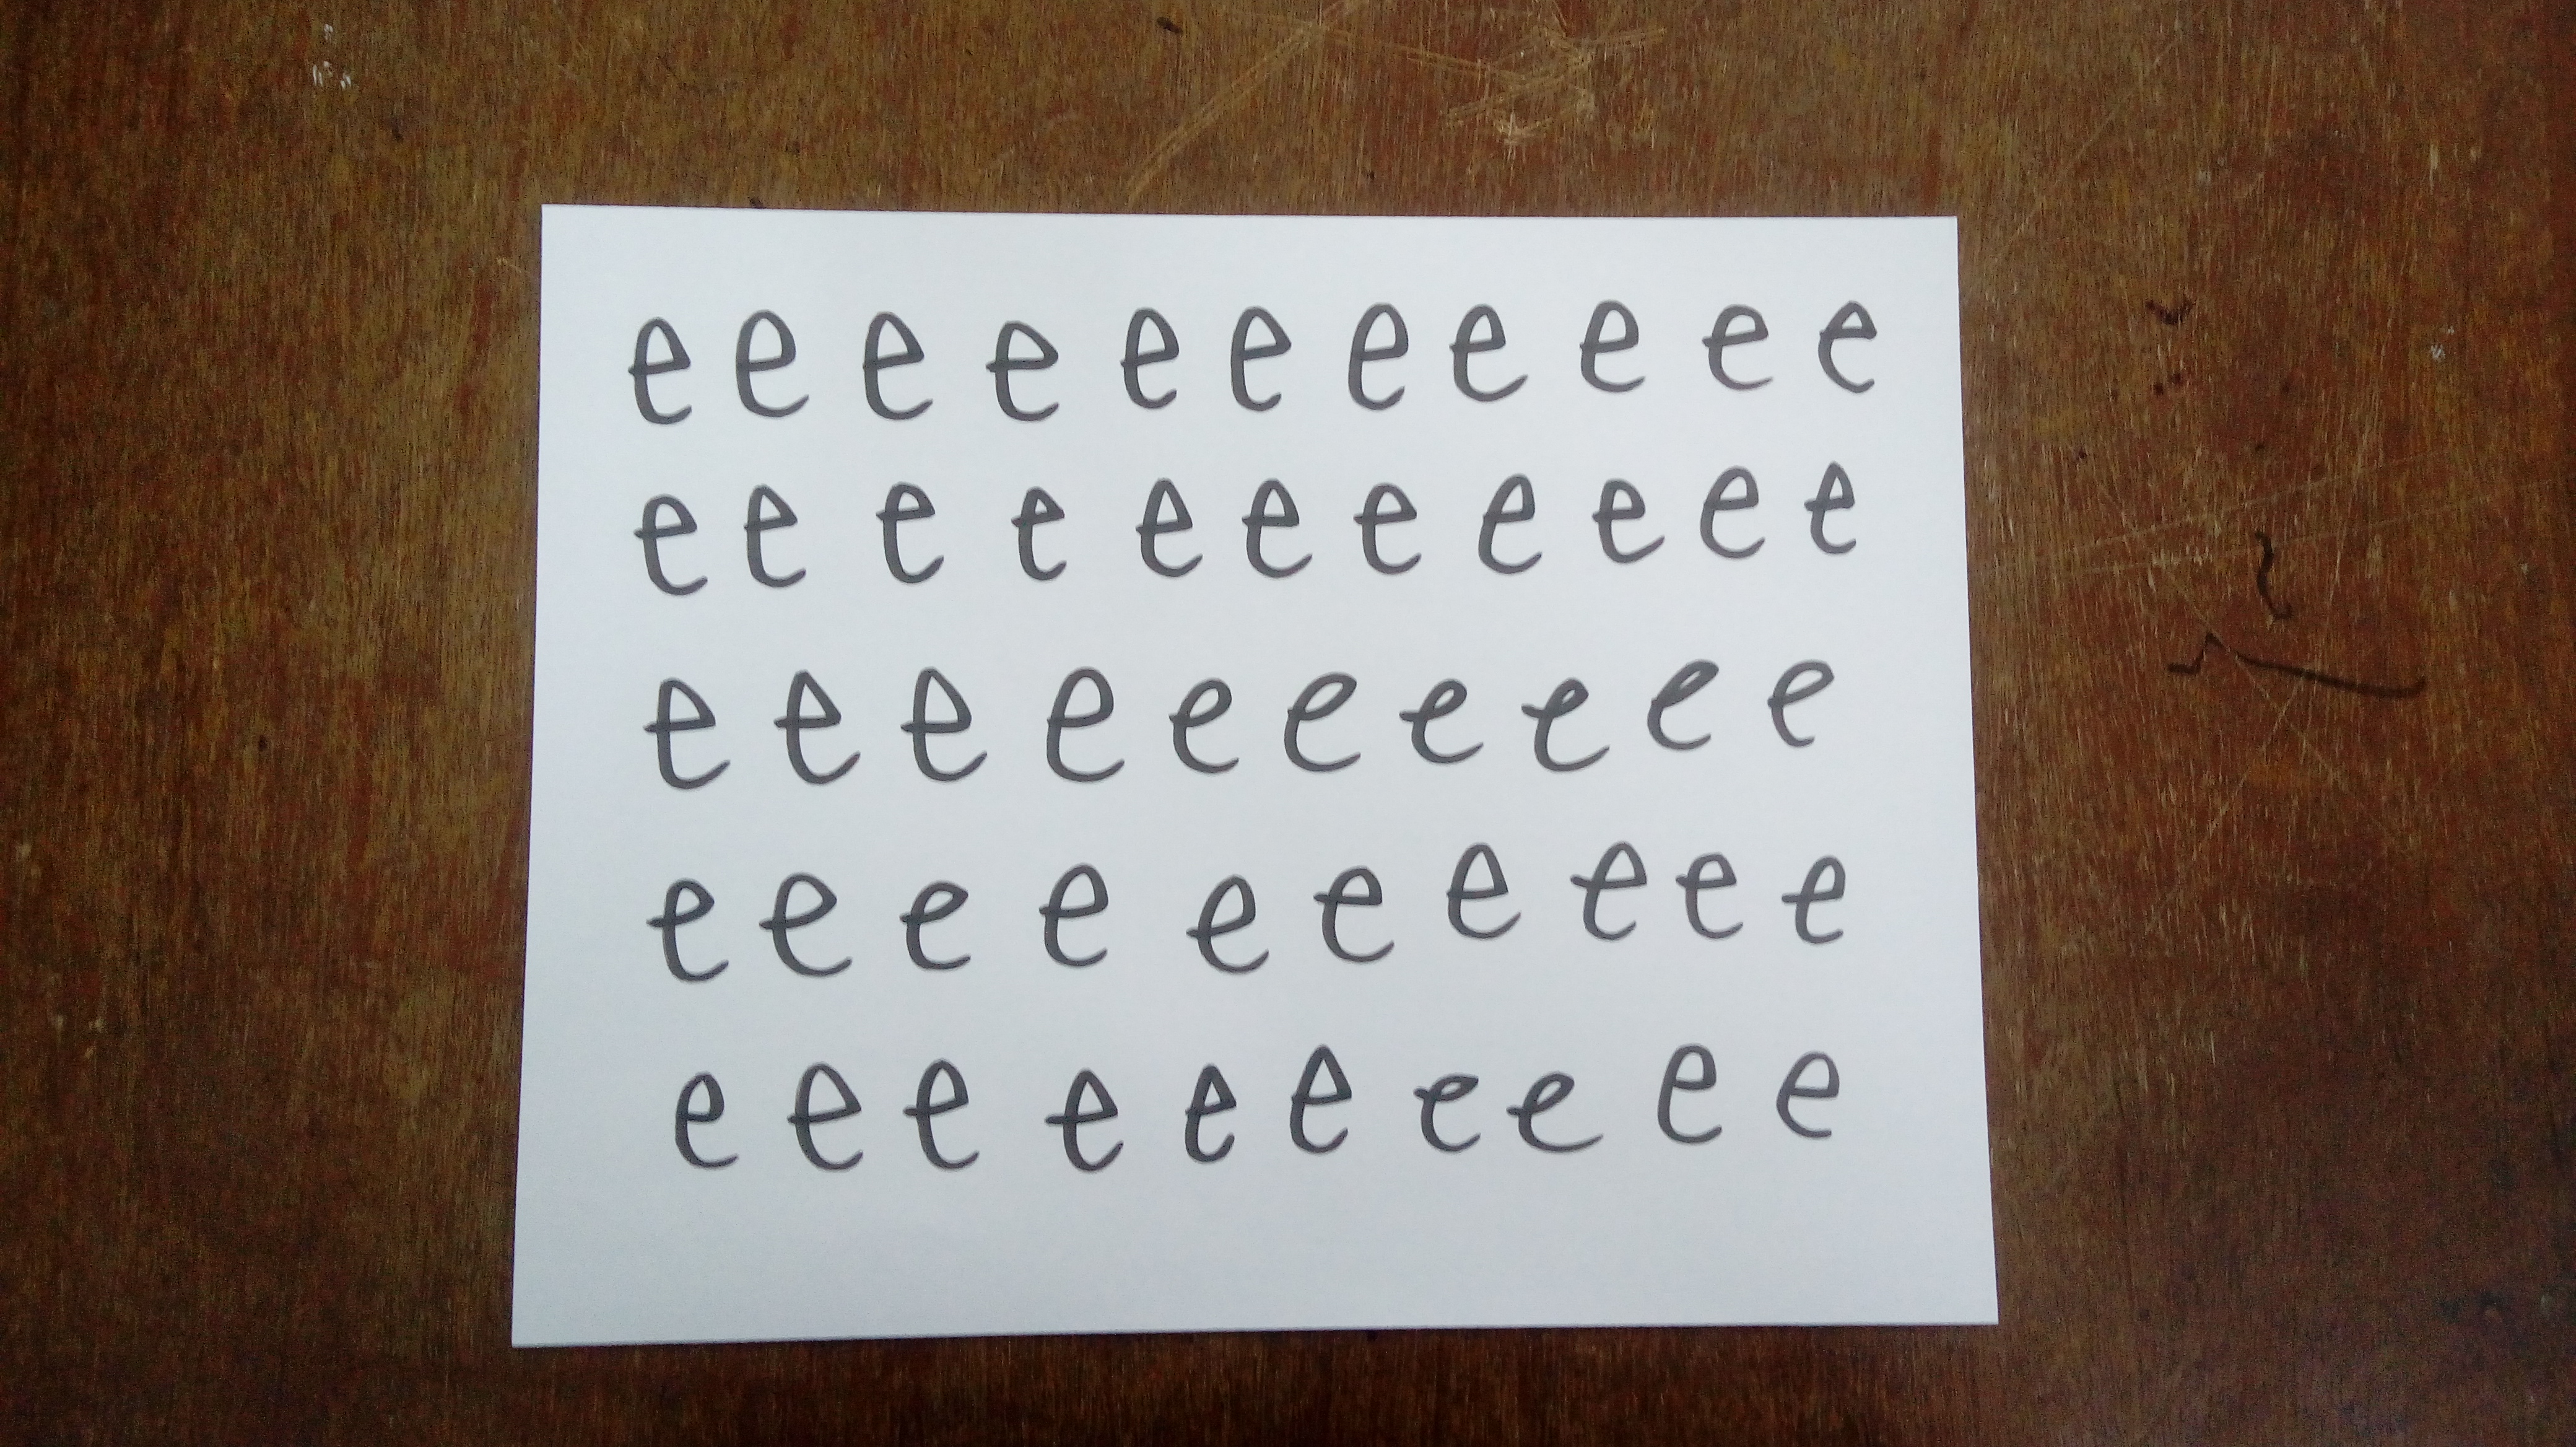 e e e e e e e e e e e
e e e e e e e e e e e
e e e e e e e e e e
e e e e e e e e e e
e e e e e e e e e e